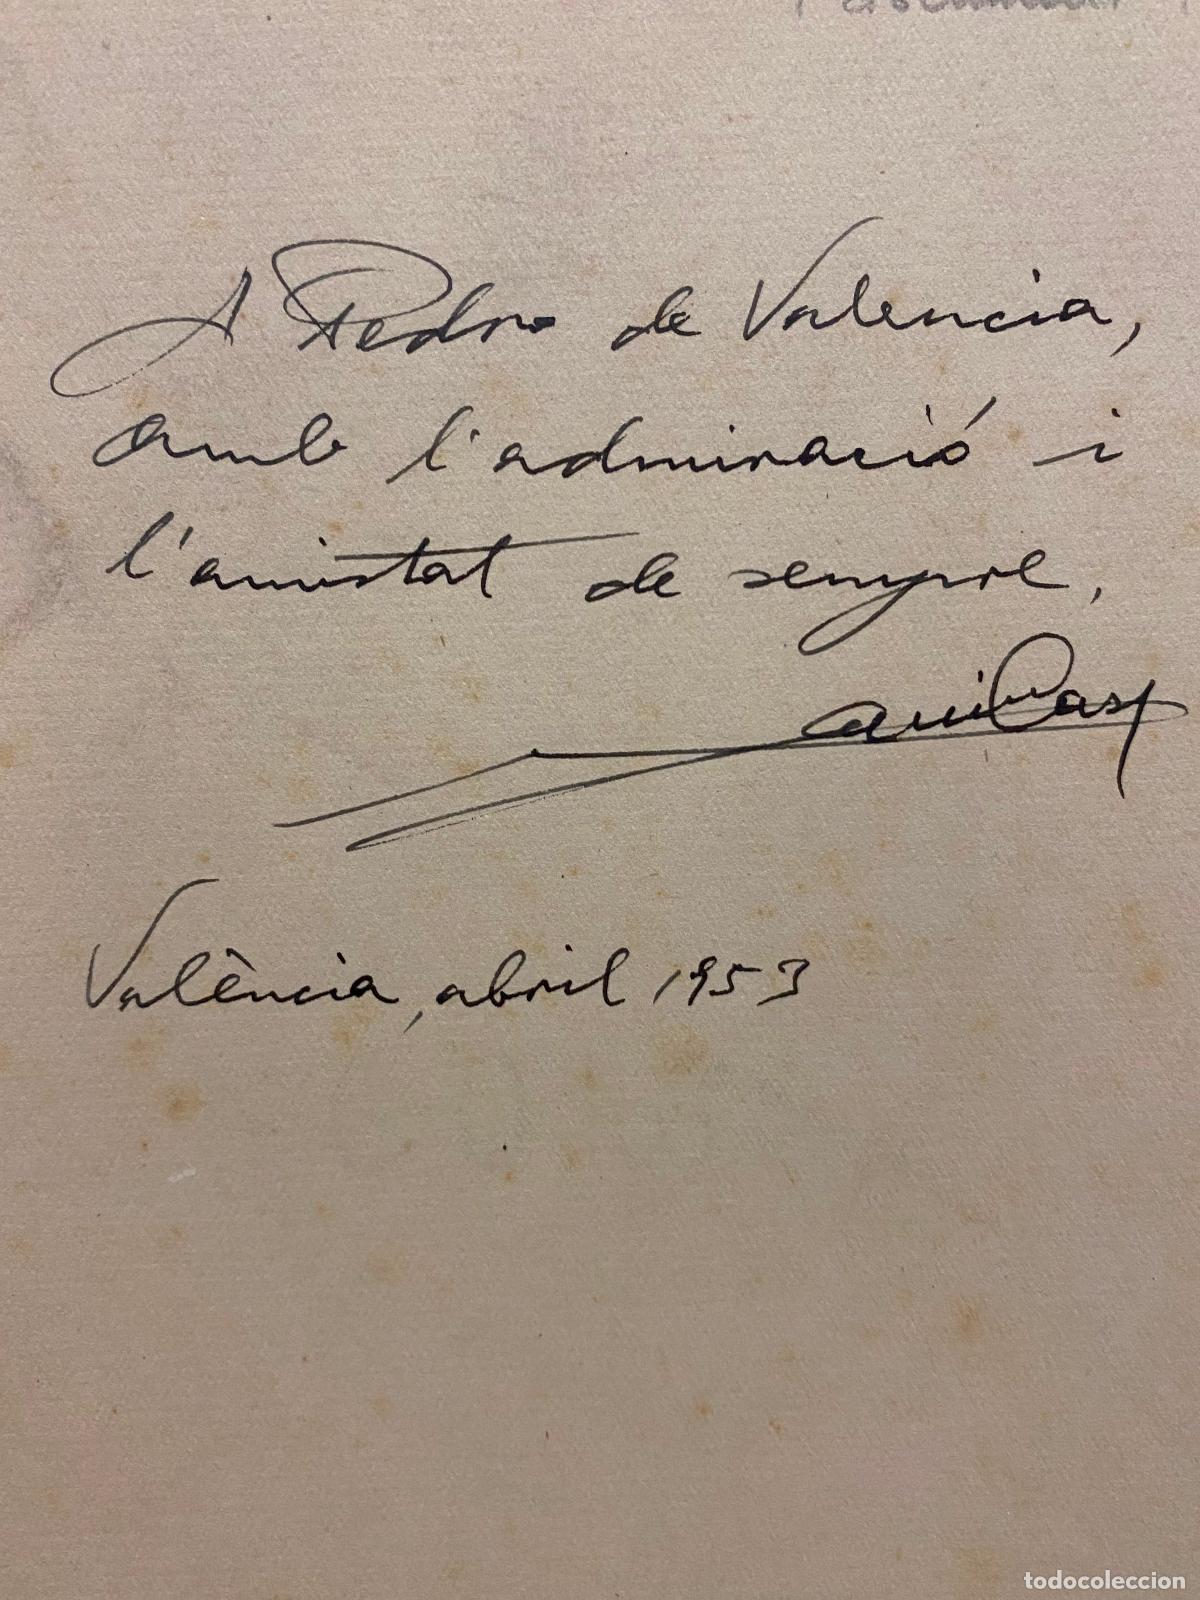 A Pedro de Valencia,
amb l'admiració i
l'amistat de sempre,
València, abril 1953
todocoleccion